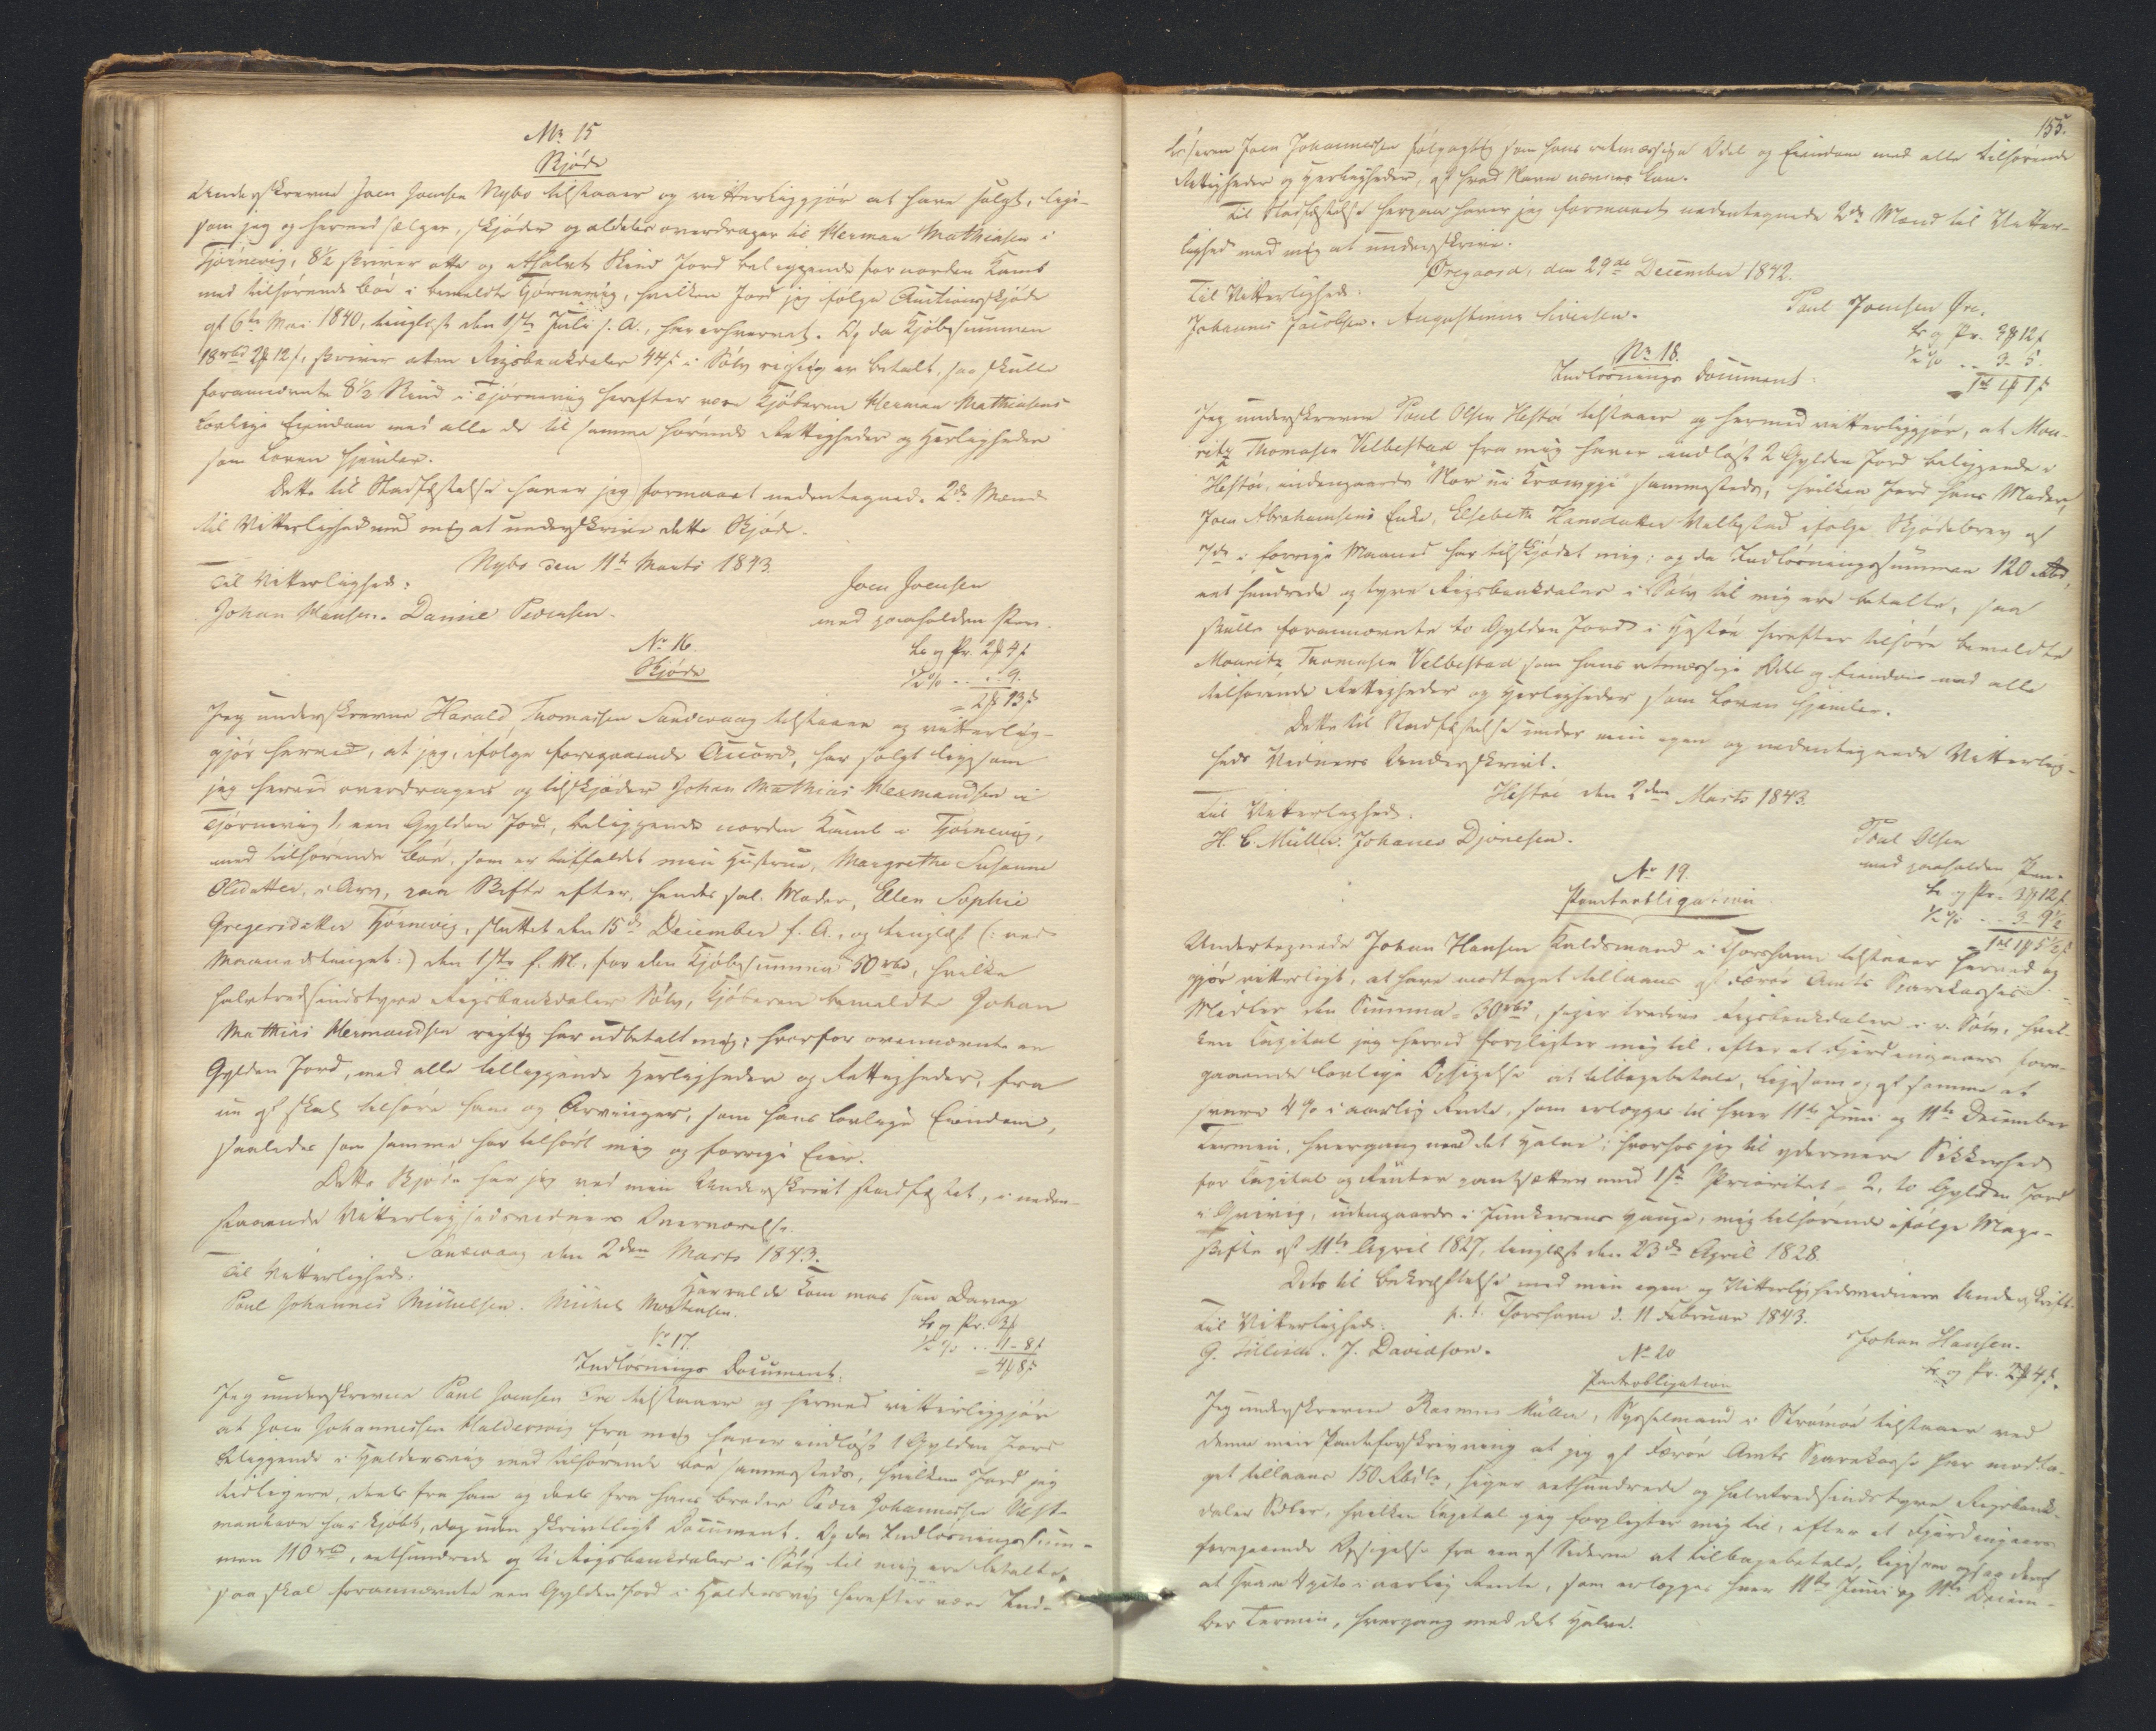 No 15
Skjøde
Underskrevne Joen Joensen Nybo tilstaaer og vitterliggjør at have solgt, lige-
som jeg og hermed sælger, skjøder og aldeles overdrager til Herman Mathiasen i
Tjørnevig, 8½ skriver otte og et halvt Skind Jord beliggende for norden Kamb
med tilhørende Bøe i bemeldte Tjørnevig, hvilken Jord jeg ifølge Auctionsskjøde
af 6te Mai 1840, tinglæst den 1ste Juli s. A., har erhvervet. Og da Kjøbesummen
18 rbd 2 12 s, skriver aten Rigsbankdaler 44 s i Sølv rigtig er betalt, saa skulle
forannævnte 8½ Skind i Tjørnevig herefter være Kjøberen Herman Mathiasens
lovlige Eiendom med alle de til samme hørende Rettigheder og Herligheder
som Loven hjemler.
Dette til Stadfæstelse haver jeg formaaet nedentegnede 2de Mænd
til Vitterlighed med mig at underskrive dette Skjøde.
Nybo den 11te Marts 1843.
Til Vitterlighed: Joen Joensen
Johan Hansen. Daniel Pedersen. med paaholden Pen.
No 16. Le og Pr. 2 4 s
Skjøde ½ % .. .. 9.
= 2 13 s
Jeg underskrevne Harald Thomassen Sandevaag tilstaaer og vitterlig-
gjør herved, at jeg, ifølge foregaaende Accord, har solgt ligesom
jeg herved overdrager og tilskjøder Johan Mathias Hermandsen i
Tjørnevig 1, een Gylden Jord, beliggende norden Kamb i Tjørnevig,
med tilhørende Bøe, som er tilfaldet min Hustrue, Margrethe Susanne
Olesdatter, i Arv, paa Skifte efter hendes sal. Moder, Ellen Sophie
Gregersdatter Tjørnevig, sluttet den 15de December f. A., og tinglæst (: ved
Maanedstinget :) den 1ste f. M., for den Kjøbesumma 50 rbd, hvilke
halvtredsindstyve Rigsbankdaler Sølv, Kjøberen bemeldte Johan
Mathias Hermandsen rigtig har udbetalt mig; hvorfor ovennævnte en
Gylden Jord, med alle tilliggende Herligheder og Rettigheder, fra
nu af skal tilhøre ham og Arvinger, som hans lovlige Eiendom,
saaledes som samme har tilhørt mig og forrige Eier.
Dette Skjøde har jeg ved min Underskrivt stadfæstet, i neden-
staaende Vitterlighedsvidners Overværelse.
Sandevaag den 2den Marts 1843.
Til Vitterlighed: Harralde Tom mas san Davog
Poul Johannes Michelsen. Michel Mortensen. Le og Pr. 3
No 17. ½ % .. 1 - 8 s
Indløsnings Document. = 4 8 s
Jeg underskrevne Poul Joensen Øre tilstaaer og hermed vitterliggjør
at Joen Johannessen Haldersvig fra mig haver indløst 1 Gylden Jord
beliggende i Haldersvig med tilhørende Bøe sammesteds, hvilken Jord jeg
tidligere, deels fra ham og deels fra hans broder Peder Johannessen Vest-
manhavn har kjøbt, dog uden skrivtligt Document. Og da Indløsningssum-
men 110 rbd, eethundrede og ti Rigsbankdaler i Sølv til mig ere betalte,
saa skal forannævnte een Gylden Jord i Haldersvig herefter være Ind-
155.
løseren Joen Johannessen følgagtig som hans retmæssige Odel og Eiendom med alle tilhørende
Rettigheder og Herligheder, af hvad Navn nævnes kan.
Til Stadfæstelse herpaa haver jeg formaaet nedentegnede 2de Mænd til Vitter-
lighed med mig at underskrive.
Øregaard, den 29de December 1842.
Til Vitterlighed: Poul Joensen Øre.
Johannes Jacobsen. Augustinus Siversen. Le og Pr. 3 12 s
No 18. ½ % .. 3 - 5.
Indløsnings Document: = 1 rd 1 1 s
Jeg underskrevne Poul Olsen Hestøe tilstaaer og hermed vitterliggjør, at Mou-
ritz Thomasen Velbestad fra mig haver indløst 2 Gylden Jord beliggende i
Hestøe, indengaards "Nor ui Kraaggji" sammesteds, hvilken Jord hans Moder,
Joen Abrahamsens Enke, Elsebeth Hansdatter Velbestad ifølge Skjødebrev af
7de i forrige Maaned har tilskjødet mig; og da Indløsningssummen 120 Rbd,
eet hundrede og tyve Rigsbankdaler i Sølv til mig ere betalte, saa
skulle forannævnte to Gylden Jord i Hestøe herefter tilhøre bemeldte
Mouritz Thomasen Velbestad som hans retmæssige Odel og Eiendom med alle
tilhørende Rettigheder og Herligheder som Loven hjemler.
Dette til Stadfæstelse under min egen og nedentegnede Vitterlig-
heds Vidners Underskrivt.
Hestøe den 2den Marts 1843.
Til Vitterlighed. Poul Olsen
H. C. Müller. Johanes Djonesen. med paaholden Pen.
No 19. Le og Pr. 3 12 s
Pantobligation ½ % .. 3 - 9½
1 rd 1 5½ s
Undertegnede Johan Hansen Kaldsmand i Thorshavn tilstaaer herved og
gjør vitterligt, at have modtaget tillaans af Færøe Amts Sparekasses
Midler den Summa = 30 rbd, siger tredive Rigsbankdaler i r. Sølv, hvil-
ken Capital jeg herved forpligter mig til, efter et Fjerdingaars fore-
gaaende lovlige Opsigelse at tilbagebetale, ligesom og af samme at
svare 4 % i aarlig Rente, som erlægges til hver 11te Juni og 11te December
Termin, hvergang med det Halve; hvorhos jeg til ydermere Sikkerhed
for Capital og Renter pantsætter med 1ste Prioritet = 2, to Gylden Jord
i Qvivig, udengaards i Junkerens Hauge, mig tilhørende ifølge Mage-
skifte af 11te April 1827, tinglæst den 23de April 1828.
Dets til Bekræftelse med min egen og Vitterlighedsvidners Underskrift.
p. t. Thorshavn d. 11 Februar 1843.
Til Vitterlighed: Johan Hansen.
G. J. Davidson.
No 20 Le og Pr. 2 4 s.
Pantobligation
Jeg underskrevne Rasmus Müller, Sysselmand i Strømøe tilstaaer ved
denne min Panteforskrivning at jeg af Færøe Amts Sparekasse har modta-
get tillaans 150 Rbdlr, siger eethundrede og halvtredsindstyve Rigsbank-
daler Sølver, hvilken Capital jeg forpligter mig til, efter et Fjerdingaars
foregaaende Opsigelse fra een af Siderne at tilbagebetale, ligesom ogsaa deraf
at svare 4 pCto i aarlig Rente, som erlægges hver 11te Juni og 11te Decem-
ber Termin, hvergang med det Halve.